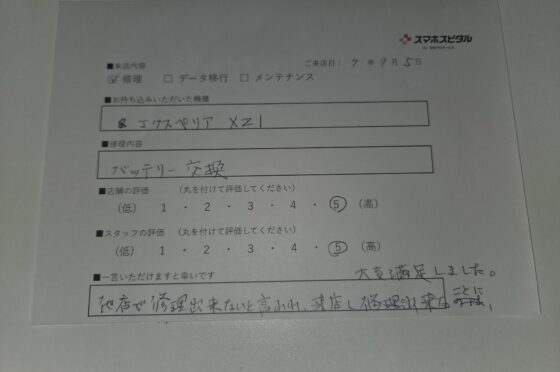 スマホスピタル
■来店内容
ご来店日: 7 年 9 月 5 日
☑ 修理 □ データ移行 □ メンテナンス
■お持ち込みいただいた機種
エクスペリア XZ1
■修理内容
バッテリー交換
■店舗の評価 (丸を付けて評価してください)
(低) 1 ・ 2 ・ 3 ・ 4 ・ 5 (高)
■スタッフの評価 (丸を付けて評価してください)
(低) 1 ・ 2 ・ 3 ・ 4 ・ 5 (高)
■一言いただけますと幸いです
大変満足しました。
他店で修理出来ないと言われ、来店し修理出来た ことに